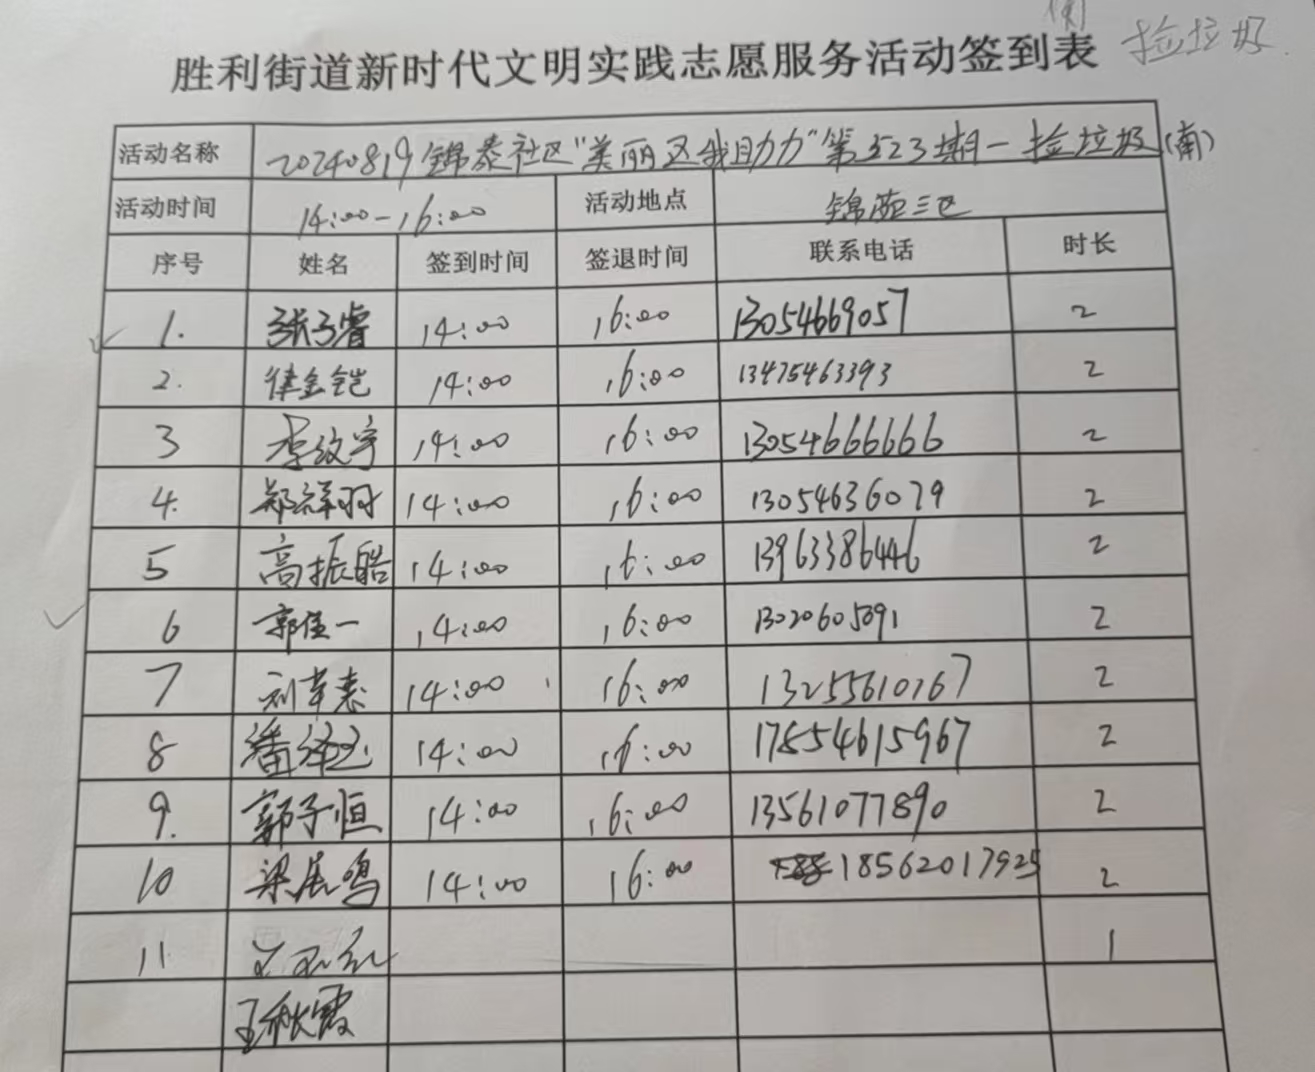 捡垃圾
胜利街道新时代文明实践志愿服务活动签到表
活动名称 20240819锦泰社区"美丽区我助力"第五23期一捡垃圾(南)
活动时间 14:00-16:00 活动地点 锦苑三区
序号 姓名 签到时间 签退时间 联系电话 时长
1. 张子睿 14:00 16:00 13054669057 2
2. 律金铠 14:00 16:00 13475463393 2
3 李纹宇 14:00 16:00 13054666666 2
4. 郑祥羽 14:00 16:00 13054636079 2
5 高振皓 14:00 16:00 13963386446 2
6 郭佳一 14:00 16:00 13020605091 2
7 刘 14:00 16:00 13255610767 2
8 潘 14:00 16:00 17854615967 2
9. 郭子恒 14:00 16:00 13561077890 2
10 梁展鸣 14:00 16:00 18562017925 2
11 1
王秋霞